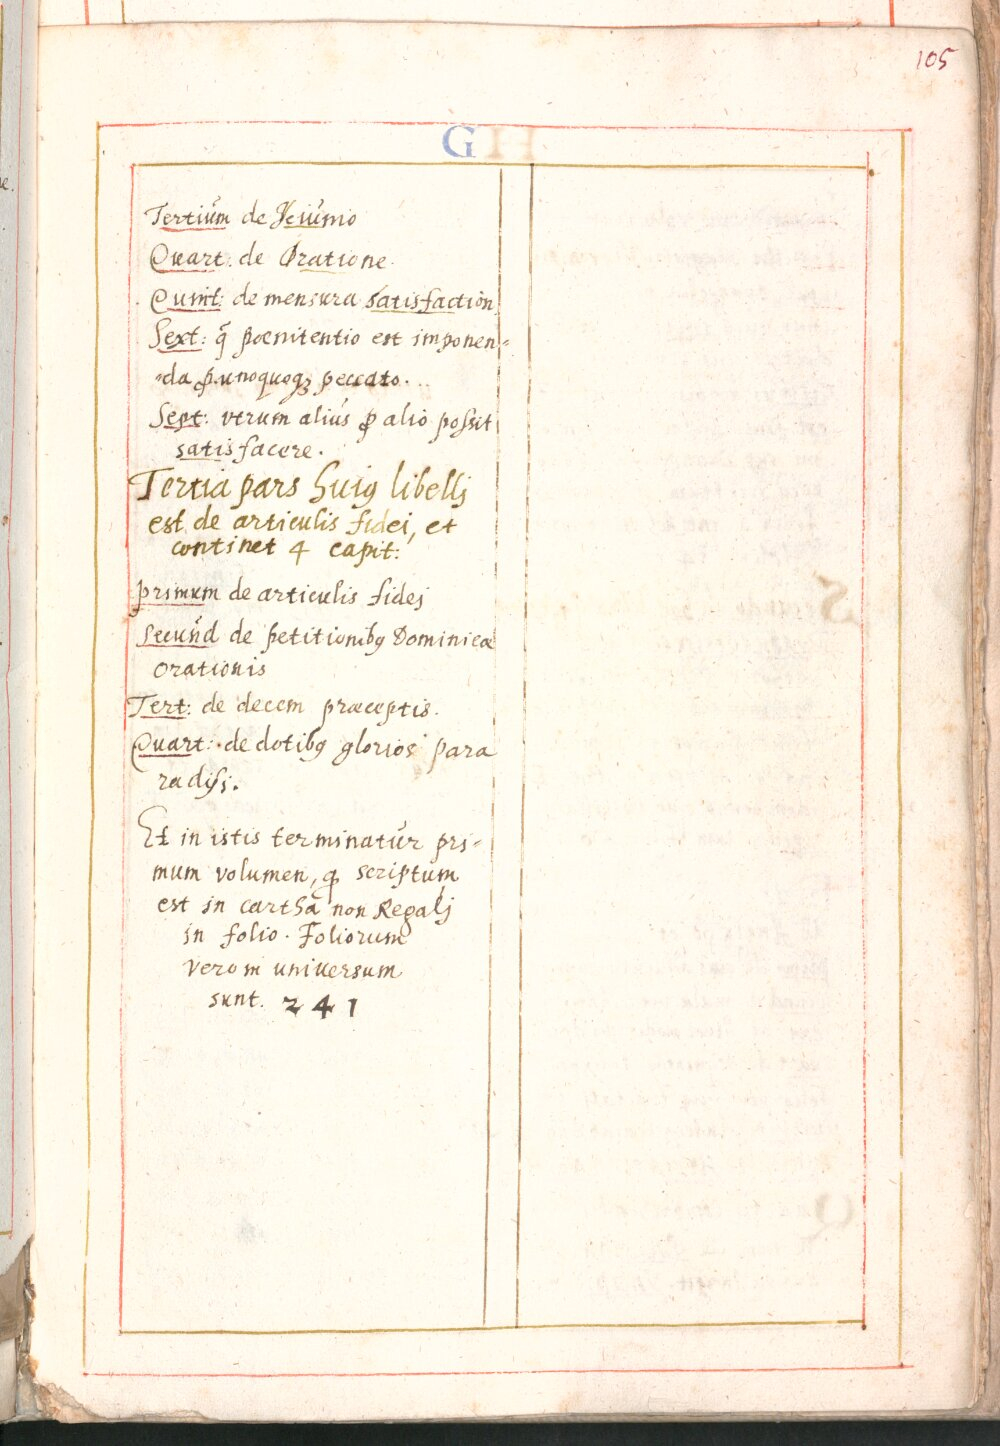 105
G
Tertiúm de Jeiúnio
Quart: de Oratione
Quint: de mensura satisfaction
Sext: q̃ pœnitentio est imponen-
da ꝓ unoquoqꝫ peccato.
Sept: vtrum aliús ꝓ alio possit
satisfacere.
Tertia pars huiꝰ libellj
est de articulis fidei, et
continet 4 capit:
primum de articulis fidej
Secúnd de petitionibꝰ Dominicæ
Orationis
Tert: de decem præceptis.
Quart: de dotibꝰ glorios para
radysj.
Et in istis terminatúr pri-
mum volumen, ꝙ scriptúm
est in carthã non Regalj
in folio. Foliorum
verom universum
sunt. 241